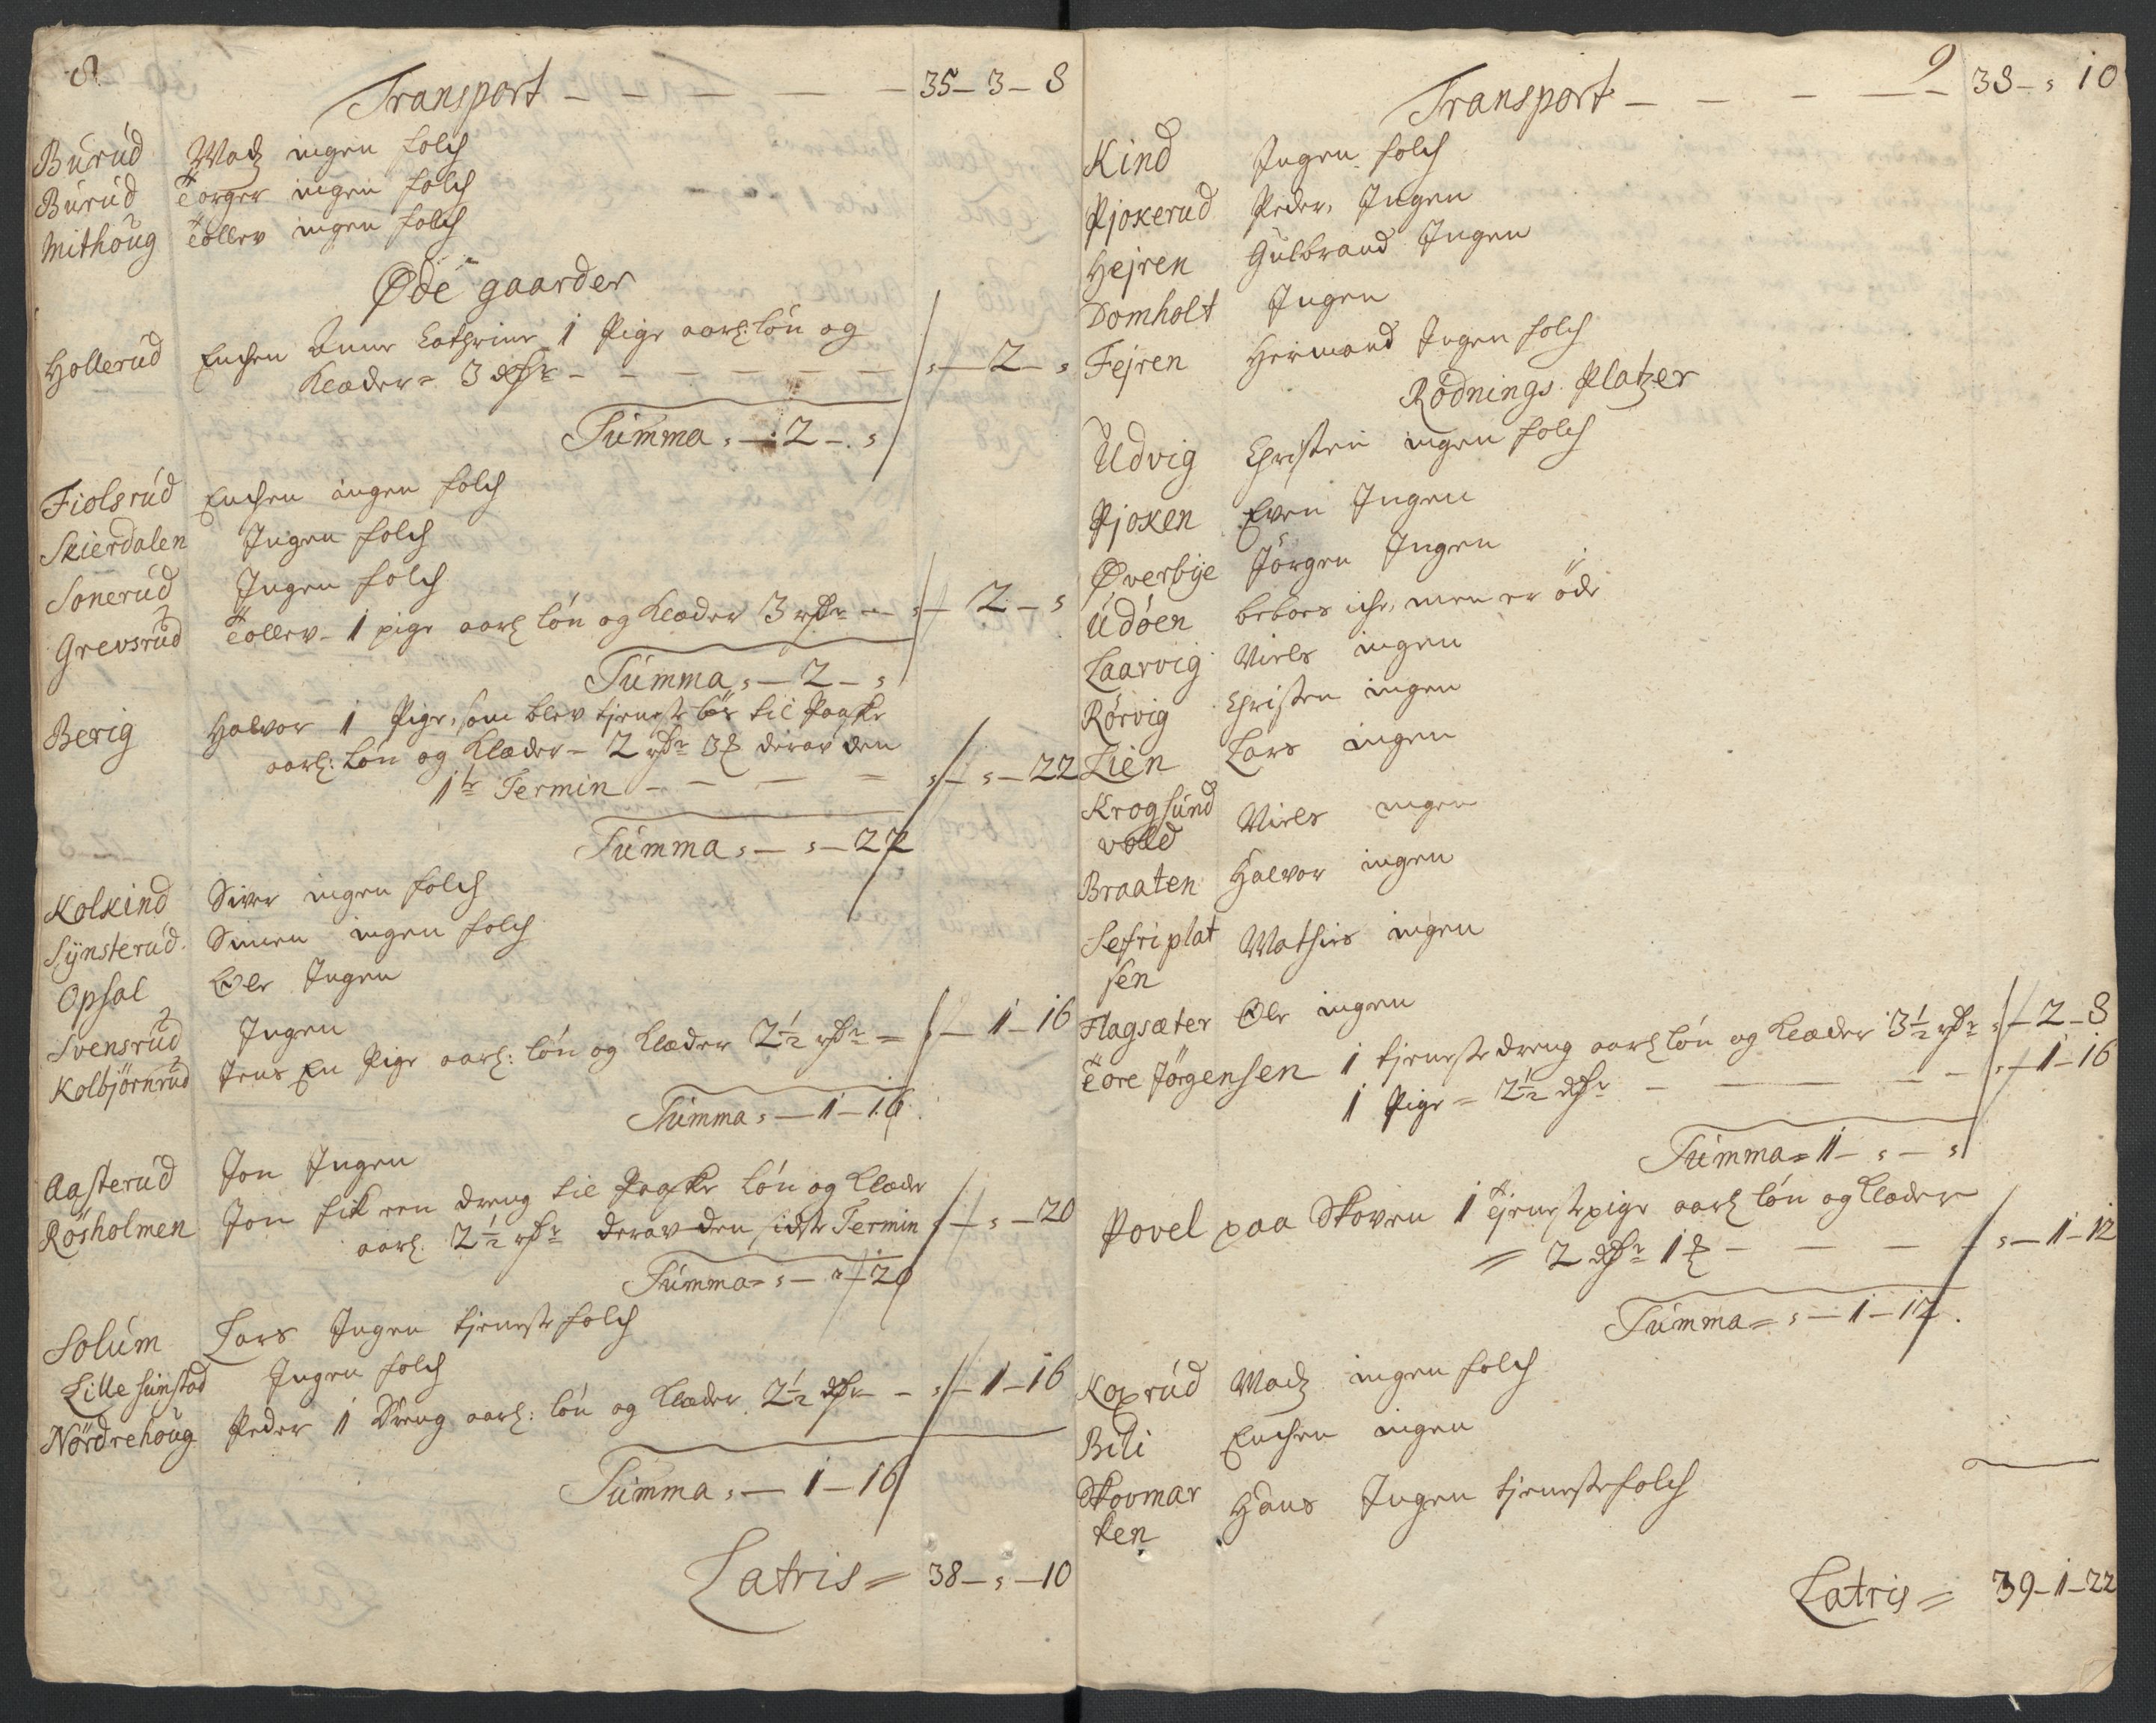 8
Transport — — — — — 35 — 3 — 8
Burud Madz ingen folch
Burud Torger ingen folch
Mithoug Tollev ingen folch
Øde gaarder
Hollerud Enchen Anne Cathrine 1 Pige aarl: løn og
Klæder = 3 rdr — — — — — — - 2 -
Summa - 2 -
Fiolsrud Enchen ingen folch
Skierdalen Ingen folch
Sonerud Ingen folch
Grevsrud Tollev - 1 pige aarl løn og Klæder 3 rdr — - 2 -
Summa - 2 -
Berig Halvor 1 Pige, som blev tjenestløs til Paaske
aarl: løn og Klæder - 2 rdr 3 ₰ derav den
1te Termin — — — = - - 22
Summa - - 22
Kolkind Siver ingen folch
Synsterud Simen ingen folch
Opsal Ole Ingen
Svensrud Ingen
Kolbjørnrud Jens En Pige aarl: løn og Klæder 2½ rdr = - 1 - 16
Summa - 1 - 16
Aasterud Jon Ingen
Rösholmen Jon fik een dreng til Paaske løn og Klæder
aarl. 2½ rdr derav den sidste Termin - - 20
Summa = - - 20
Solum Lars Ingen tjenestefolch
Lille sunstad Ingen folch
Nørdrehoug Peder 1 Dreng aarl: løn og Klæder 2½ rdr — - 1 - 16
Summa - 1 - 16
Latris = 38 - - 10
9
Transport — — — — 38 - - 10
Kind Ingen folch
Pjokerud Peder, Ingen
Hejren Gulbrand Ingen
Domholt Ingen
Fejren Hermand Ingen folch
Rødnings Platzer
Udvig Christen ingen folch
Pjoken Even Ingen
Øverbye Jørgen Ingen
Udøen beboes iche, men er øde
Laarvig Niels ingen
Rørvig Christen ingen
Lien Lars ingen
Krogsund
vold Niels ingen
Braaten Halvor ingen
Sefriplat
sen Mathies ingen
Flagsæter Ole ingen
Tore Jørgensen 1 tjenestedreng aarl løn og Klæder 3½ rdr - 2 - 8
1 Pige = 2½ rdr — — — — - 1 - 16
Summa = 1 - - -
Povel paa Skoven 1 tjenestpige aarl løn og Klæder
= 2 rdr 1 ₰ — — — — - 1 - 12
Summa = - 1 - 12
Koxrud Madz ingen folch
Bili Enchen ingen
Skovmar
ken Hans Ingen tjenestefolch
Latris = 39 - 1 - 22